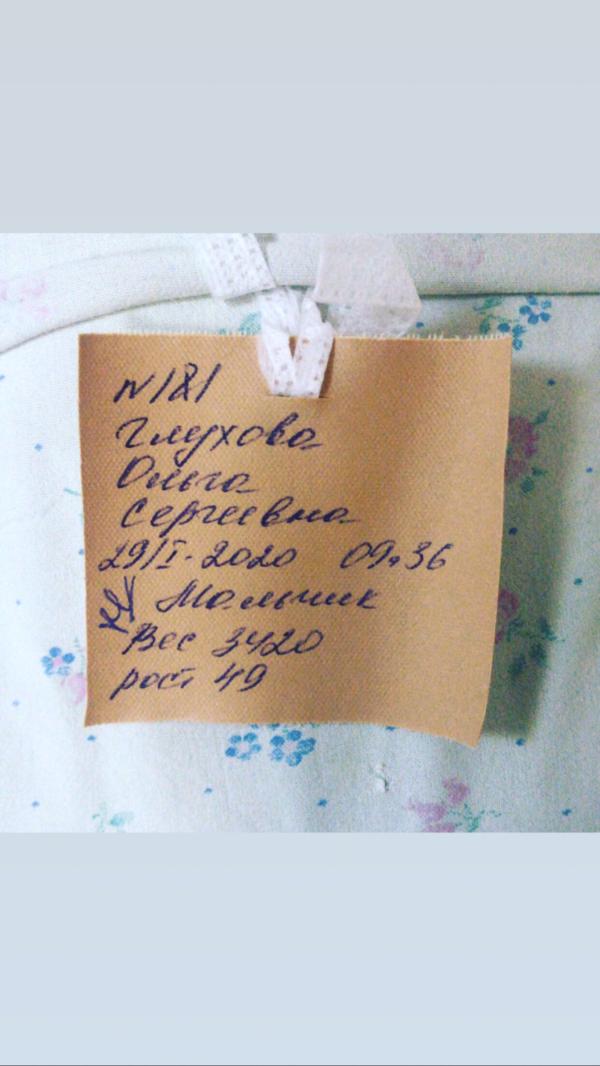 N 181
Глухова
Ольга
Сергеевна
29/I-2020 09ч36
Мальчик
Вес 3420
рост 49